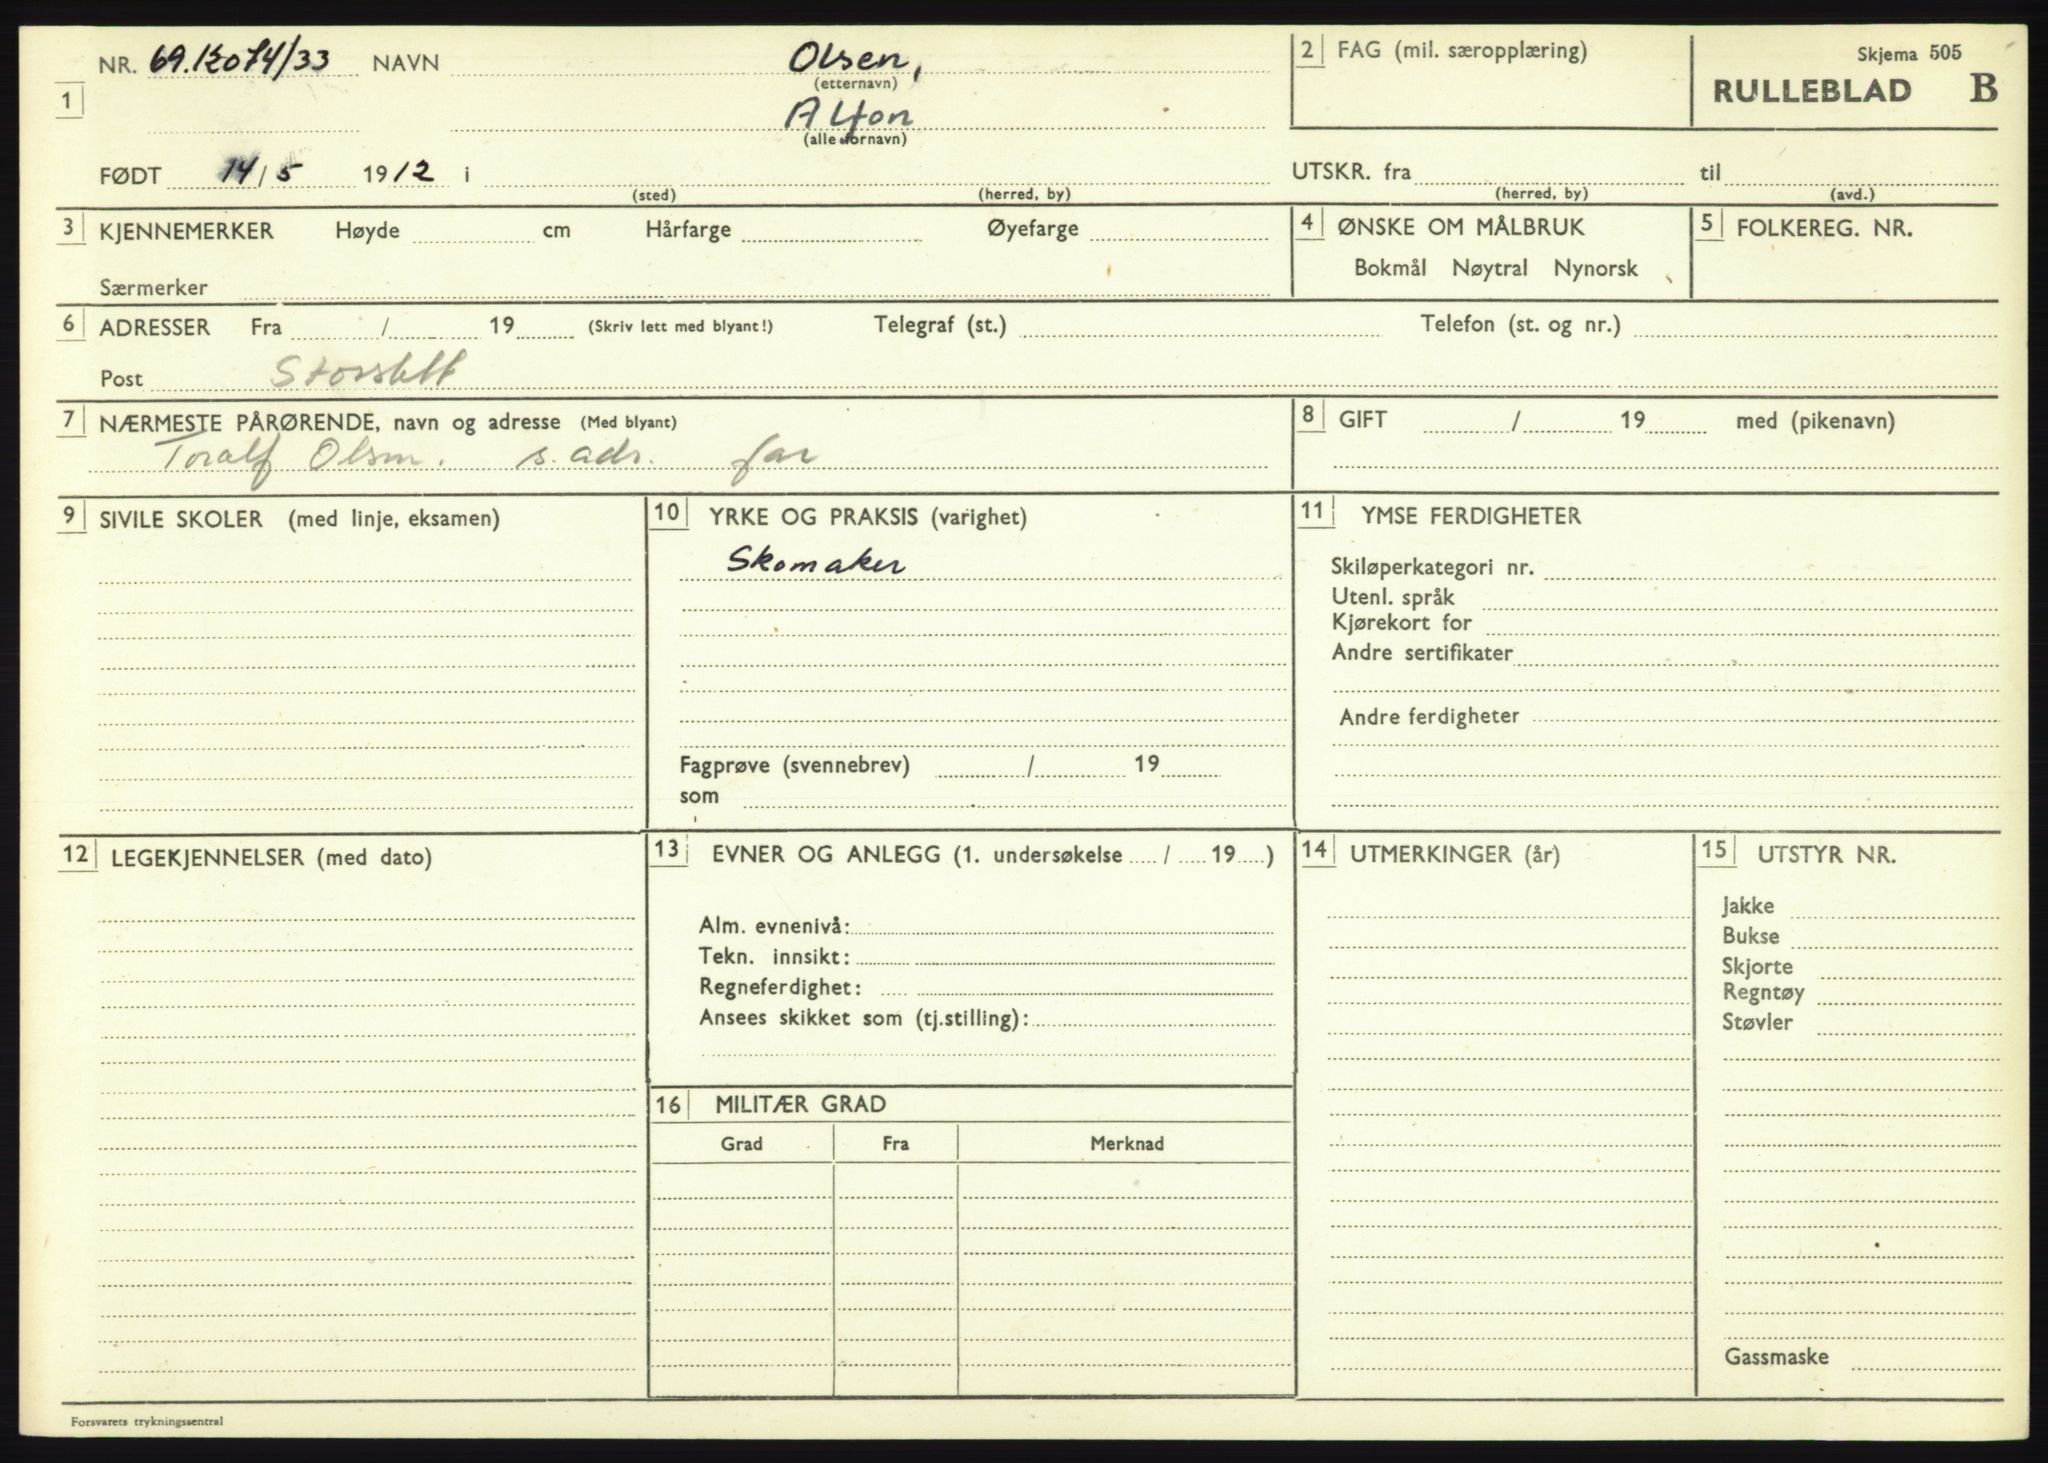 NR. 69.Ko74/33 NAVN Olsen, (etternavn)
2 FAG (mil. særopplæring)
Skjema 505
RULLEBLAD B
1
Alfon
(alle fornavn)
FØDT 14/5 1912 i (sted) (herred, by)
UTSKR. fra (herred, by) til (avd.)
3 KJENNEMERKER Høyde cm Hårfarge Øyefarge
Særmerker
4 ØNSKE OM MÅLBRUK
Bokmål Nøytral Nynorsk
5 FOLKEREG. NR.
6 ADRESSER Fra / 19 (Skriv lett med blyant!) Telegraf (st.) Telefon (st. og nr.)
Post Storslett
7 NÆRMESTE PÅRØRENDE, navn og adresse (Med blyant)
Toralf Olsen. s. adr. far
8 GIFT / 19 med (pikenavn)
9 SIVILE SKOLER (med linje, eksamen)
10 YRKE OG PRAKSIS (varighet)
Skomaker
Fagprøve (svennebrev) / 19
som
11 YMSE FERDIGHETER
Skiløperkategori nr.
Utenl. språk
Kjørekort for
Andre sertifikater
Andre ferdigheter
12 LEGEKJENNELSER (med dato)
13 EVNER OG ANLEGG (1. undersøkelse / 19 )
Alm. evnenivå:
Tekn. innsikt:
Regneferdighet:
Ansees skikket som (tj.stilling):
14 UTMERKINGER (år)
15 UTSTYR NR.
Jakke
Bukse
Skjorte
Regntøy
Støvler
Gassmaske
16 MILITÆR GRAD
Grad Fra Merknad
Forsvarets trykningssentral